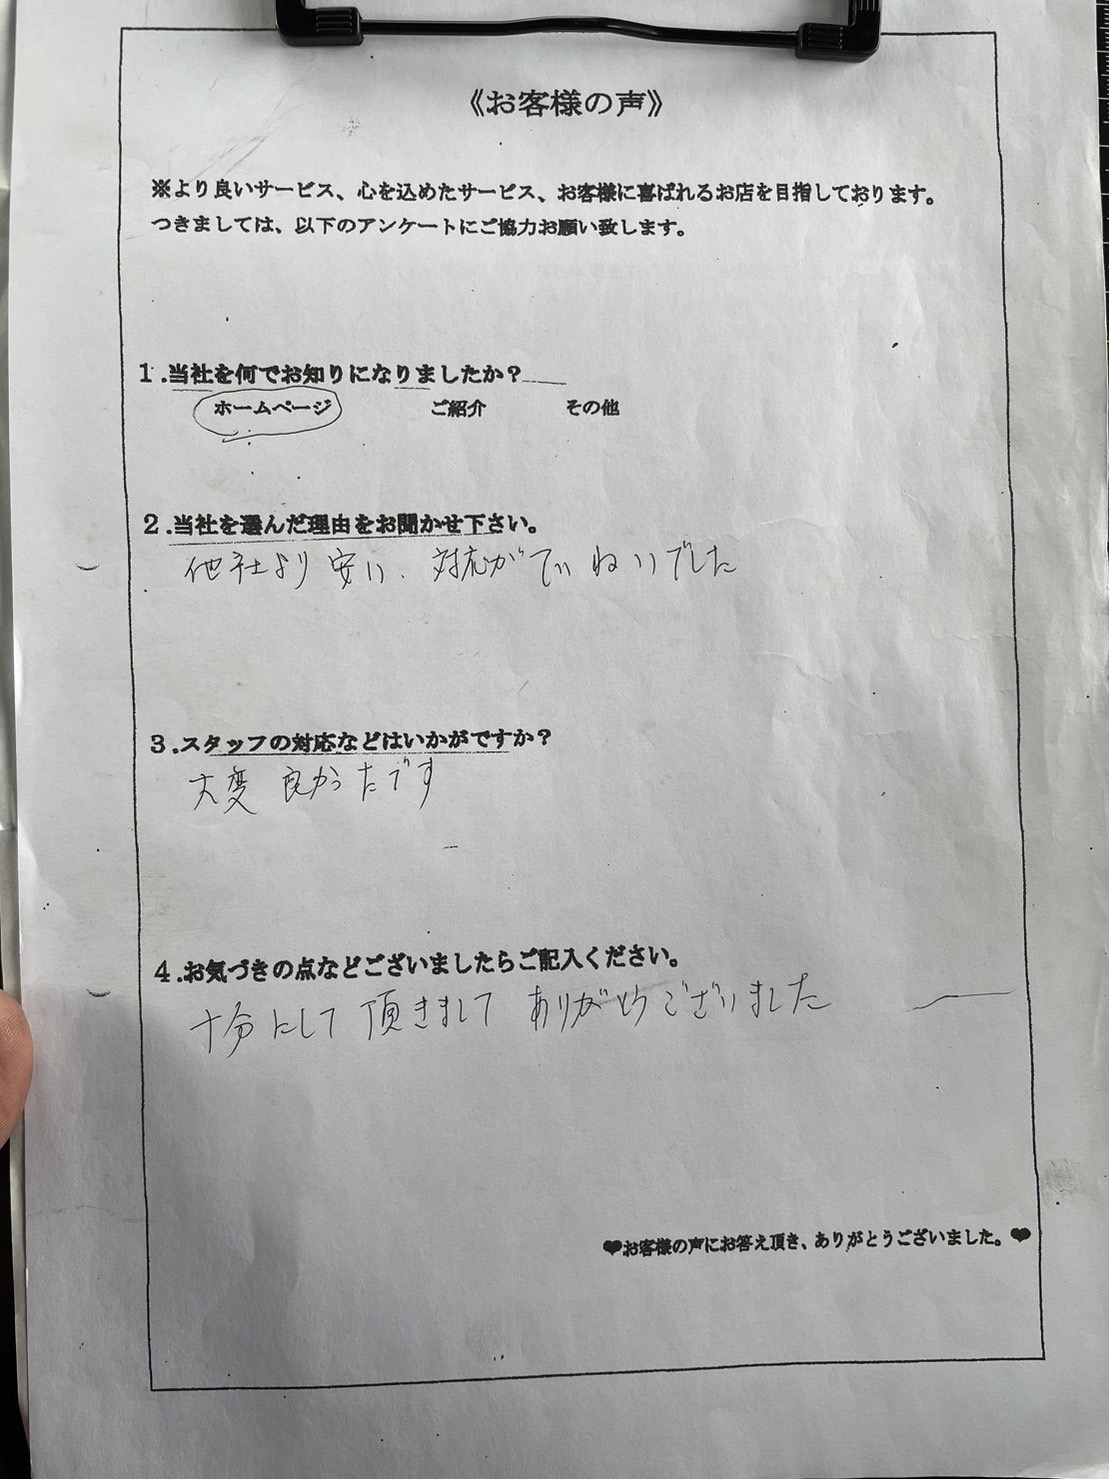 《お客様の声》
※より良いサービス、心を込めたサービス、お客様に喜ばれるお店を目指しております。
つきましては、以下のアンケートにご協力お願い致します。
1.当社を何でお知りになりましたか?
ホームページ ご紹介 その他
2.当社を選んだ理由をお聞かせ下さい。
他社より安い、対応がていねいでした
3.スタッフの対応などはいかがですか?
大変良かったです
4.お気づきの点などございましたらご記入ください。
十分にして頂きまして ありがとうございました
♥お客様の声にお答え頂き、ありがとうございました。♥